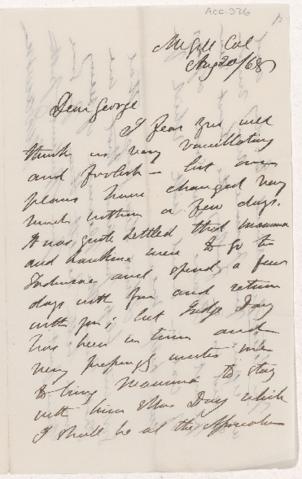 Acc 976
McGill Col
Aug 20/68
Dear George
I fear you will
think us very vacillating
and foolish – but our
plans have changed very
much within a few days.
It was quite settled that mamma
and were to go to
and spend a few
days with you and return
with you; but Judge Day
has been in town and
very me
to bring Mamma to stay
with him & Mrs Day while
I shall be at the